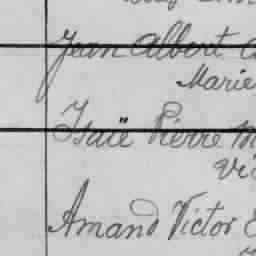 Jean Albert
Marie
Isaïe Pierre
Amand Victor